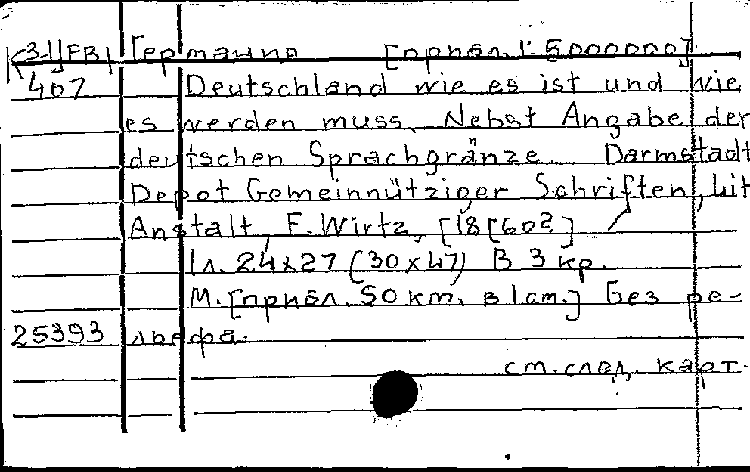 К3-1/FB Германия [прибл. 1:5000000]
407 Deutschland wie es ist und wie
es werden muss. Nebst Angabe der
deutschen Sprachgränze. Darmstadt
Depot Gemeinnütziger Schriften, Lit
Anstalt, F. Wirtz, [18[60?]
1 л. 24x27 (30x47) В 3 кр.
М. [прибл. 50 km. в 1 cm.] Без ре-
25393 льефа.
см. след. карт.